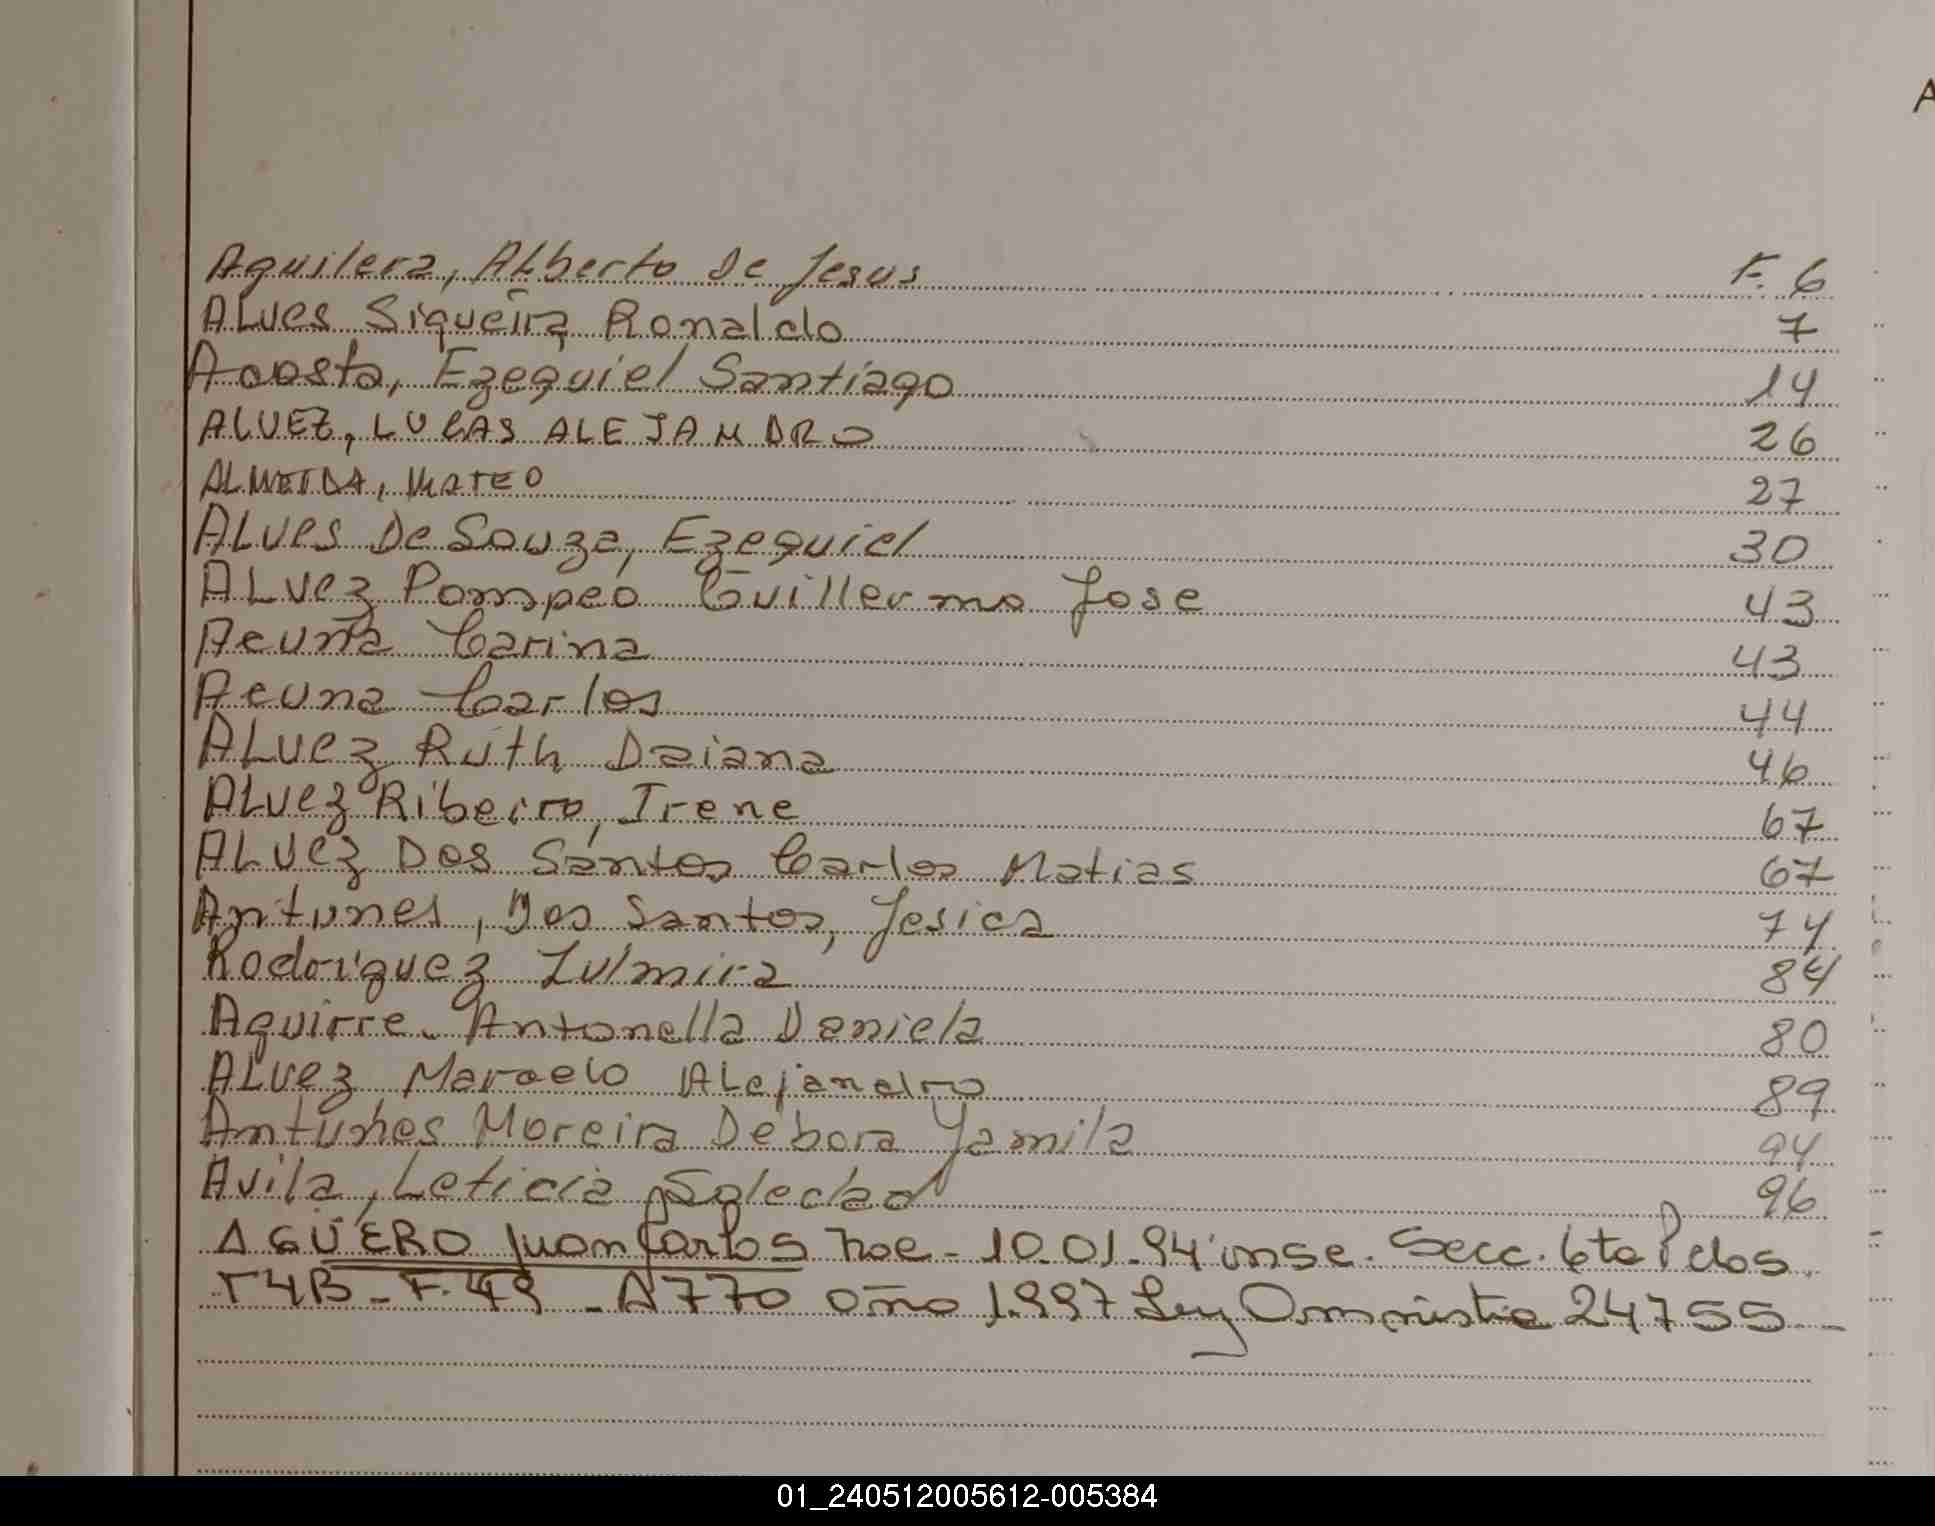 A
Aguilera, Alberto De Jesus F. 6
ALves Siqueira Ronaldo 7
Acosta, Ezequiel Santiago 14
ALVEZ, LUCAS ALEJANDRO 26
ALMEIDA, MATEO 27
ALves De Souza, Ezequiel 30
ALvez Pompeo Guillermo Jose 43
Acuña Carina 43
Acuna Carlos 44
ALvez Ruth Daiana 46
ALvez Ribeiro, Irene 67
ALvez Dos Santos Carlos Matias 67
Antunes, Dos Santos, Jesica 74
Rodriguez Zulmira 84
Aguirre Antonella Daniela 80
ALvez Marcelo ALejandro 89
Antunhes Moreira Debora Yamila 94
Avila, Leticia Soledad 96
AGÜERO Juan Carlos nac - 10.01.94 insc. Secc. 6ta Pdos
T4B - F. 49 - A 770 año 1.997 Ley Amnistia 24755 -
01_240512005612-005384